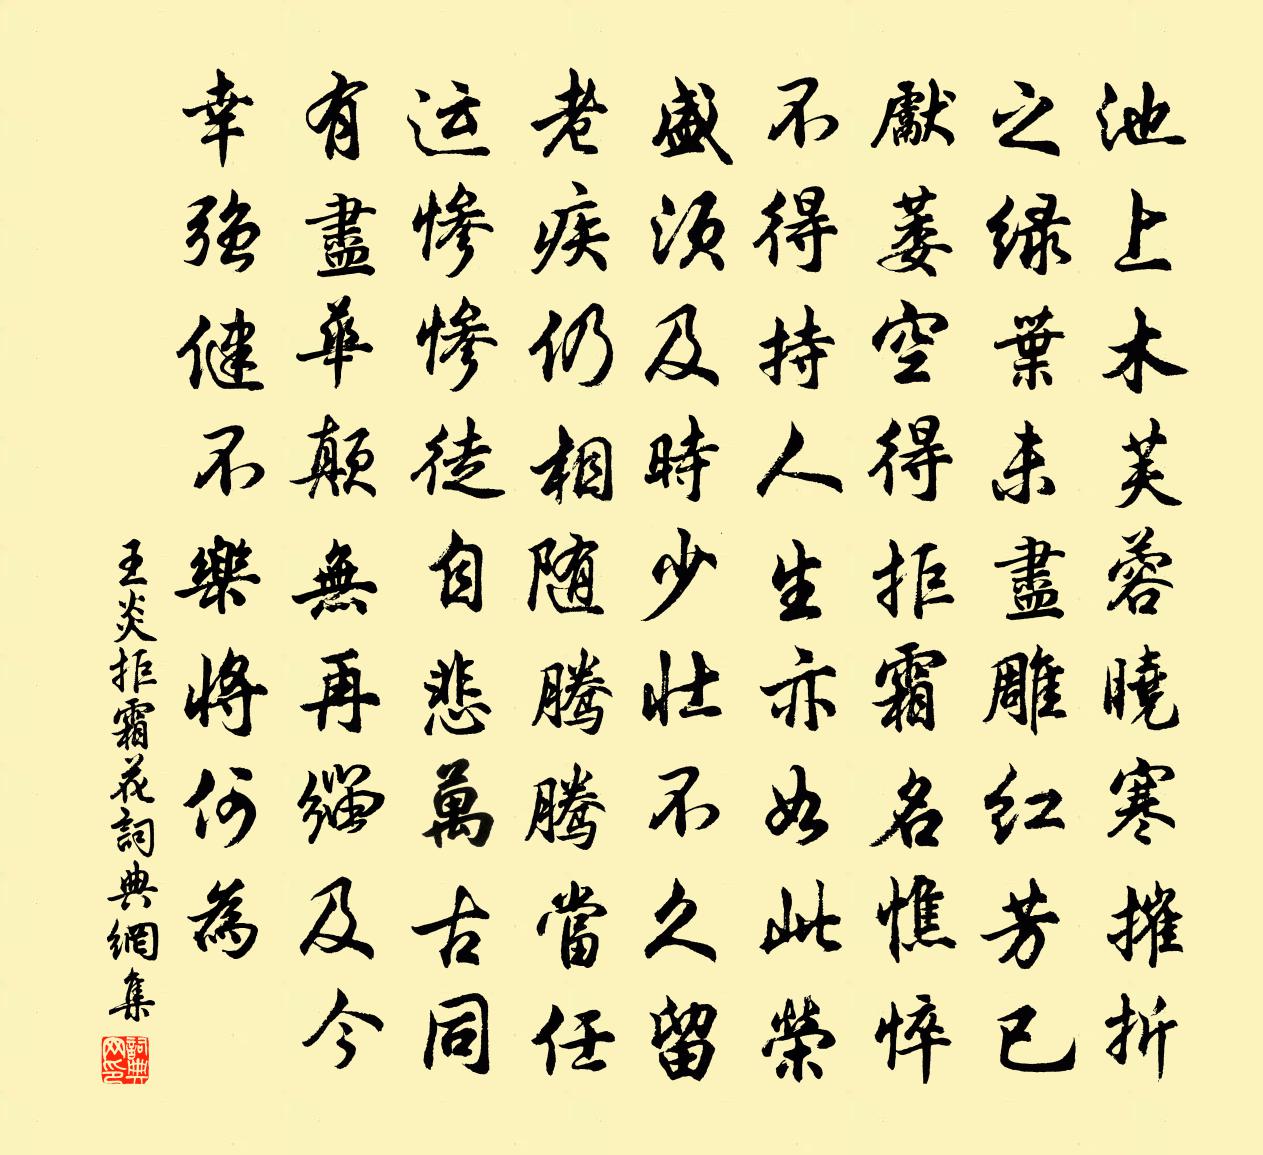 池上木芙蓉曉寒摧折
之緑葉未盡雕紅芳已
獻萎空得拒霜名憔悴
不得持人生亦如此榮
盛須及時少壯不久留
老疾仍相随騰騰當任
运慘慘徒自悲萬古同
有盡華顛無再緇及今
幸強健不樂將何為
王炎拒霜花詞典網集
詞典网印